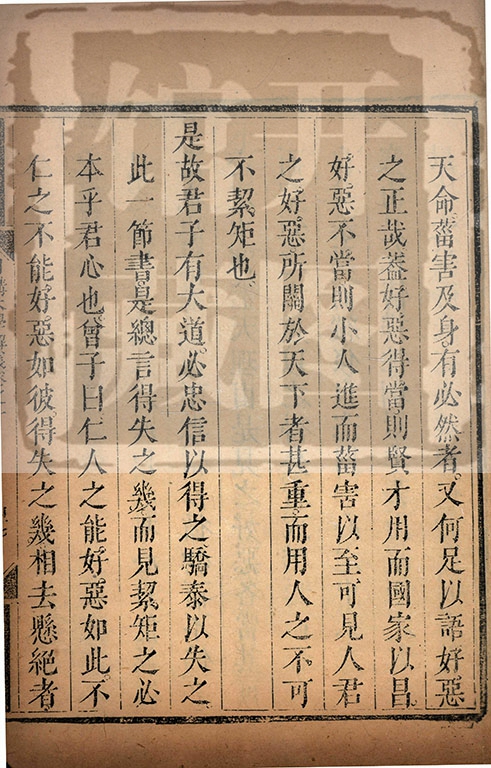 天命菑害及身有必然者又何足以語好惡
之正哉葢好惡得當則賢才用而國家以昌
好惡不當則小人進而菑害以至可見人君
之好惡所關於天下者甚重而用人之不可
不絜矩也
是故君子有大道必忠信以得之驕泰以失之
此一節書是總言得失之幾而見絜矩之必
本乎君心也曾子曰仁人之能好惡如此不
仁之不能好惡如彼得失之幾相去懸絕者